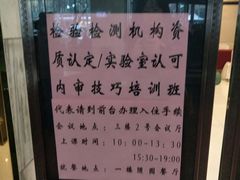 检验检测机构资
质认定/实验室认可
内审技巧培训班
代表请到前台办理入住手续
会议地点：三楼2号会议厅
上课时间：10:00-13:30
15:30-19:00
就餐地点：一楼随园餐厅